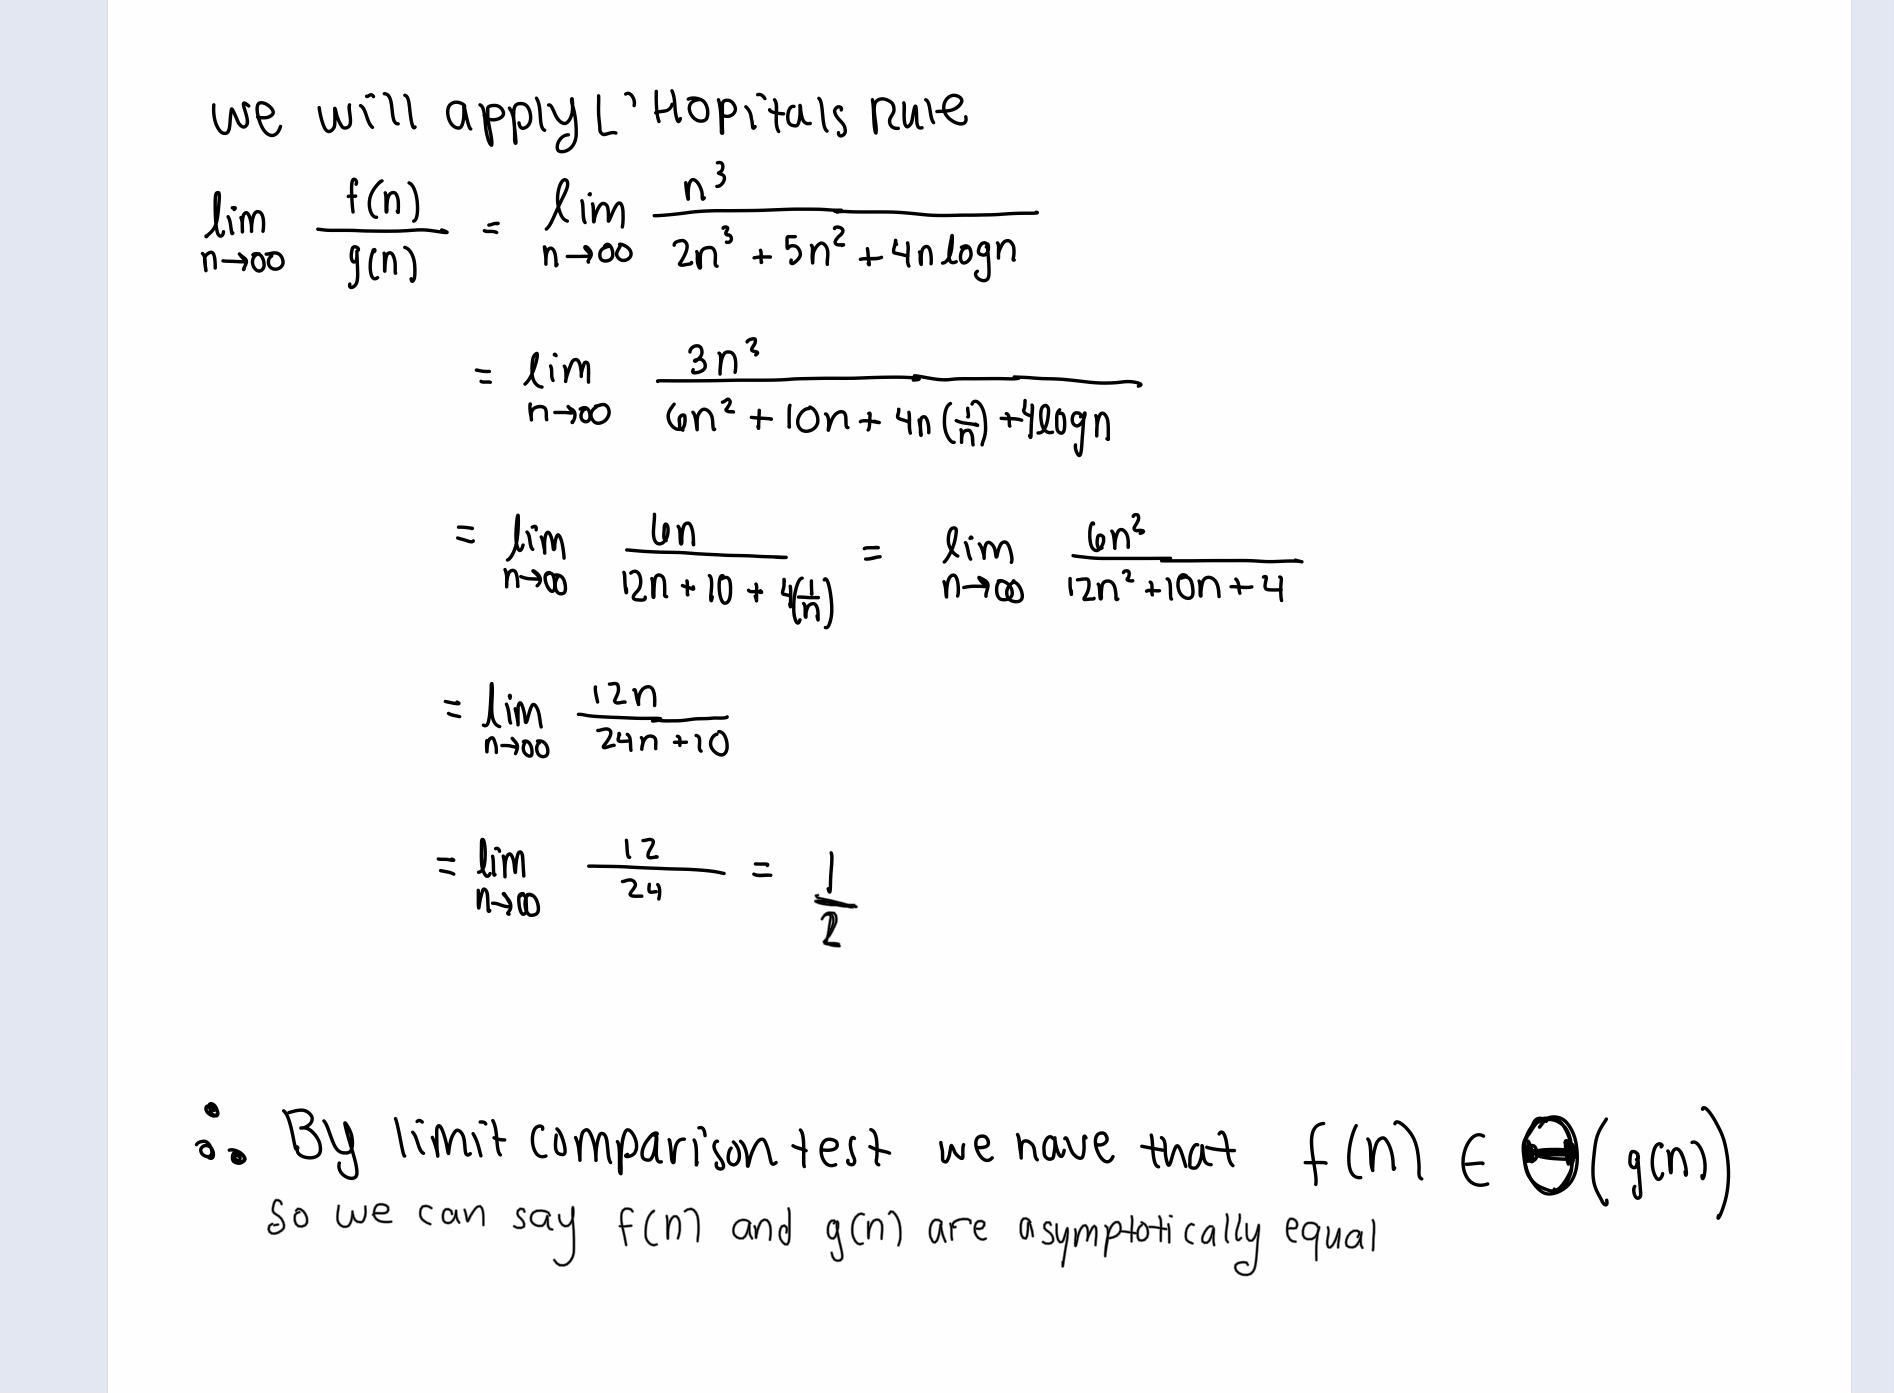 we will apply L'Hopitals Rule
lim n→∞ f(n)/g(n) = lim n→∞ n³/(2n³ + 5n² + 4n log n)
= lim n→∞ 3n²/(6n² + 10n + 4n(1/n) + 4 log n)
= lim n→∞ 6n/(12n + 10 + 4(1/n)) = lim n→∞ 6n²/(12n² + 10n + 4)
= lim n→∞ 12n/(24n + 10)
= lim n→∞ 12/24 = 1/2
∴ By limit comparison test we have that f(n) ∈ Θ(g(n))
so we can say f(n) and g(n) are asymptotically equal